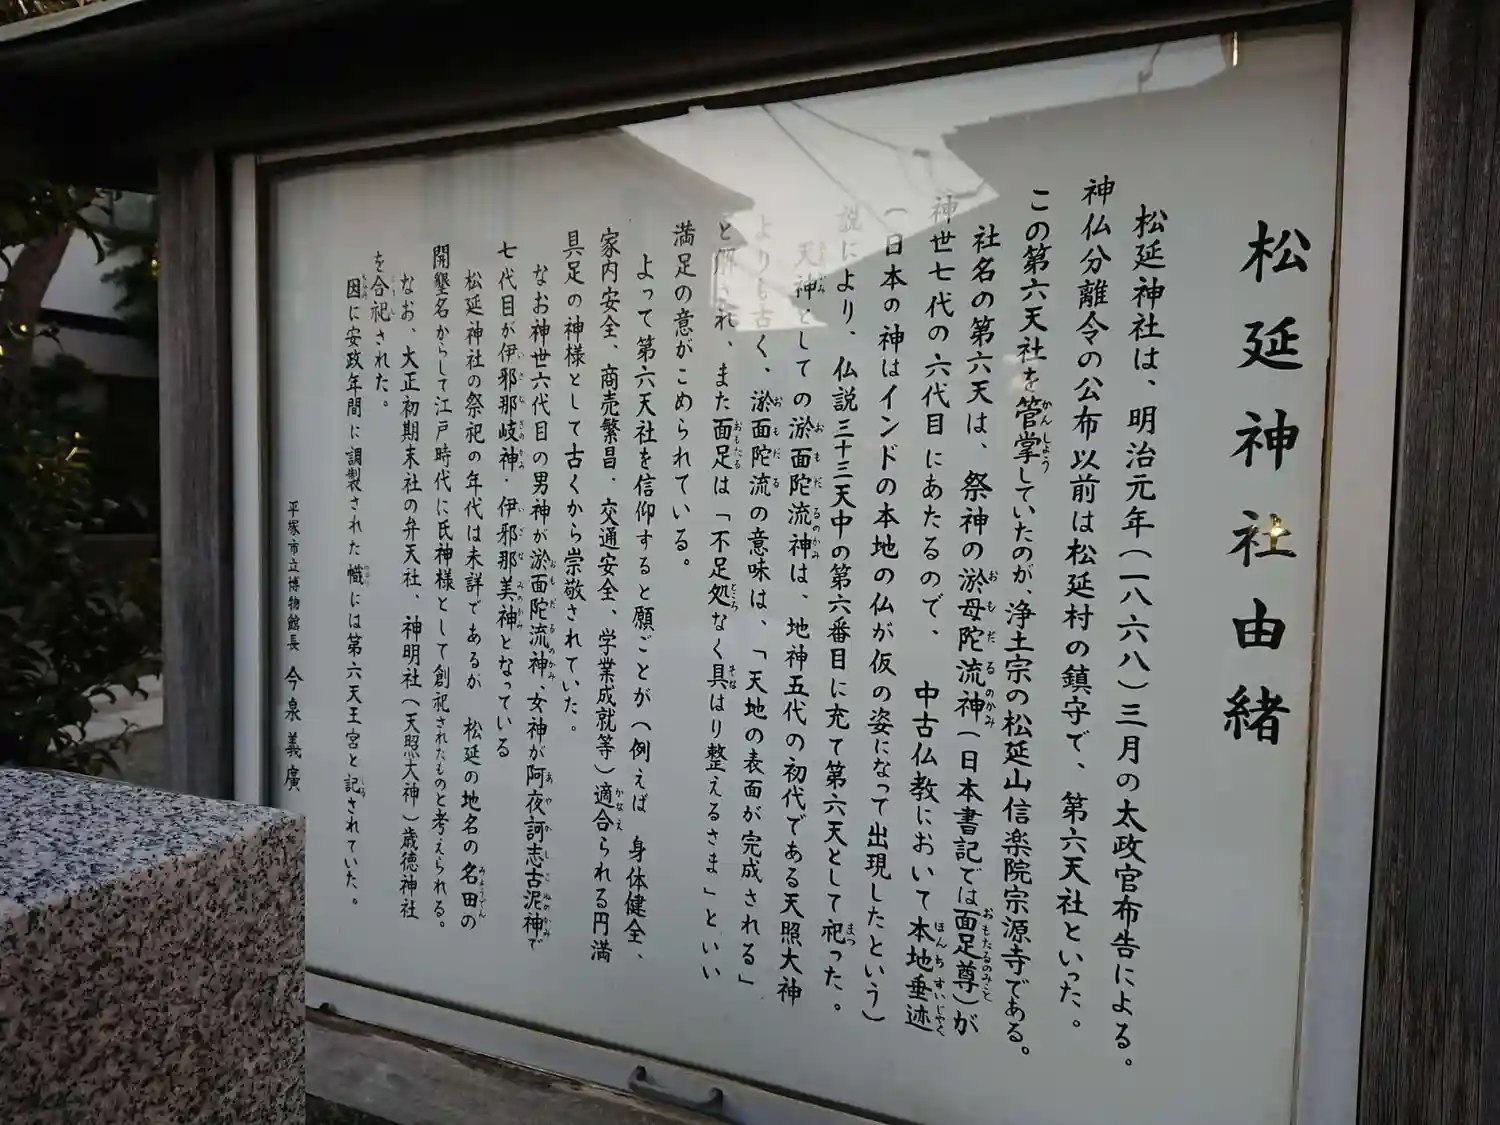 松延神社由緒
松延神社は、明治元年(一八六八)三月の太政官布告による。
神仏分離令の公布以前は松延村の鎮守で、第六天社といった。
この第六天社を管掌していたのが、浄土宗の松延山信楽院宗源寺である。
社名の第六天は、祭神の淤母陀流神(日本書記では面足尊)が
神世七代の六代目にあたるので、中古仏教において本地垂迹
(日本の神はインドの本地の仏が仮の姿になって出現したという)
説により、仏説三十三天中の第六番目に充て第六天として祀った。
天神としての淤面陀流神は、地神五代の初代である天照大神
よりも古く、淤面陀流の意味は、「天地の表面が完成される」
と解され、また面足は「不足処なく具はり整えるさま」といい
満足の意がこめられている。
よって第六天社を信仰すると願ごとが(例えば 身体健全、
家内安全、商売繁昌・交通安全、学業成就等)適合られる円満
具足の神様として古くから崇敬されていた。
なお神世六代目の男神が淤面陀流神、女神が阿夜訶志古泥神で
七代目が伊邪那岐神・伊邪那美神となっている
松延神社の祭祀の年代は未詳であるが 松延の地名の名田の
開墾名からして江戸時代に氏神様として創祀されたものと考えられる。
なお、大正初期末社の弁天社、神明社(天照大神)歳徳神社
を合祀された。
因に安政年間に調製された幟には第六天王宮と記されていた。
平塚市立博物館長 今泉義廣